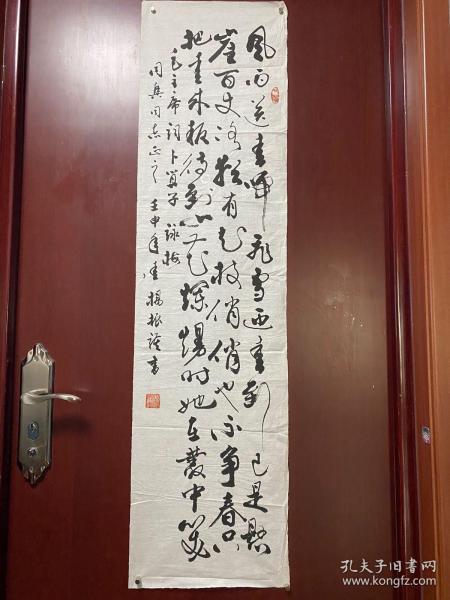 風雨送春归飛雪迎春到已是懸
崖百丈冰猶有花枝俏俏也不争春只
把春来報待到山花爛熳时她在叢中笑
毛主席詞卜算子 咏梅
同興同志正之 壬申年春 楊振 書
孔夫子旧书网
www.kongfz.com